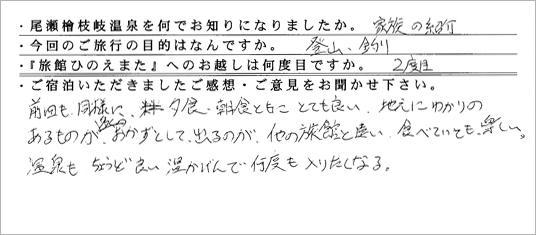 ・尾瀬檜枝岐温泉を何でお知りになりましたか。 家族の紹介
・今回のご旅行の目的はなんですか。 登山、釣り
・『旅館ひのえまた』へのお越しは何度目ですか。 2度目
・ご宿泊いただきましたご感想・ご意見をお聞かせ下さい。
前回も、同様に、夕食・朝食ともに とても良い、地元にゆかりの
あるものが、おかずとして、出るのが、他の旅館と違い、食べていても、楽しい。
温泉も ちょうど良い 温かげんで 何度も 入りたくなる。